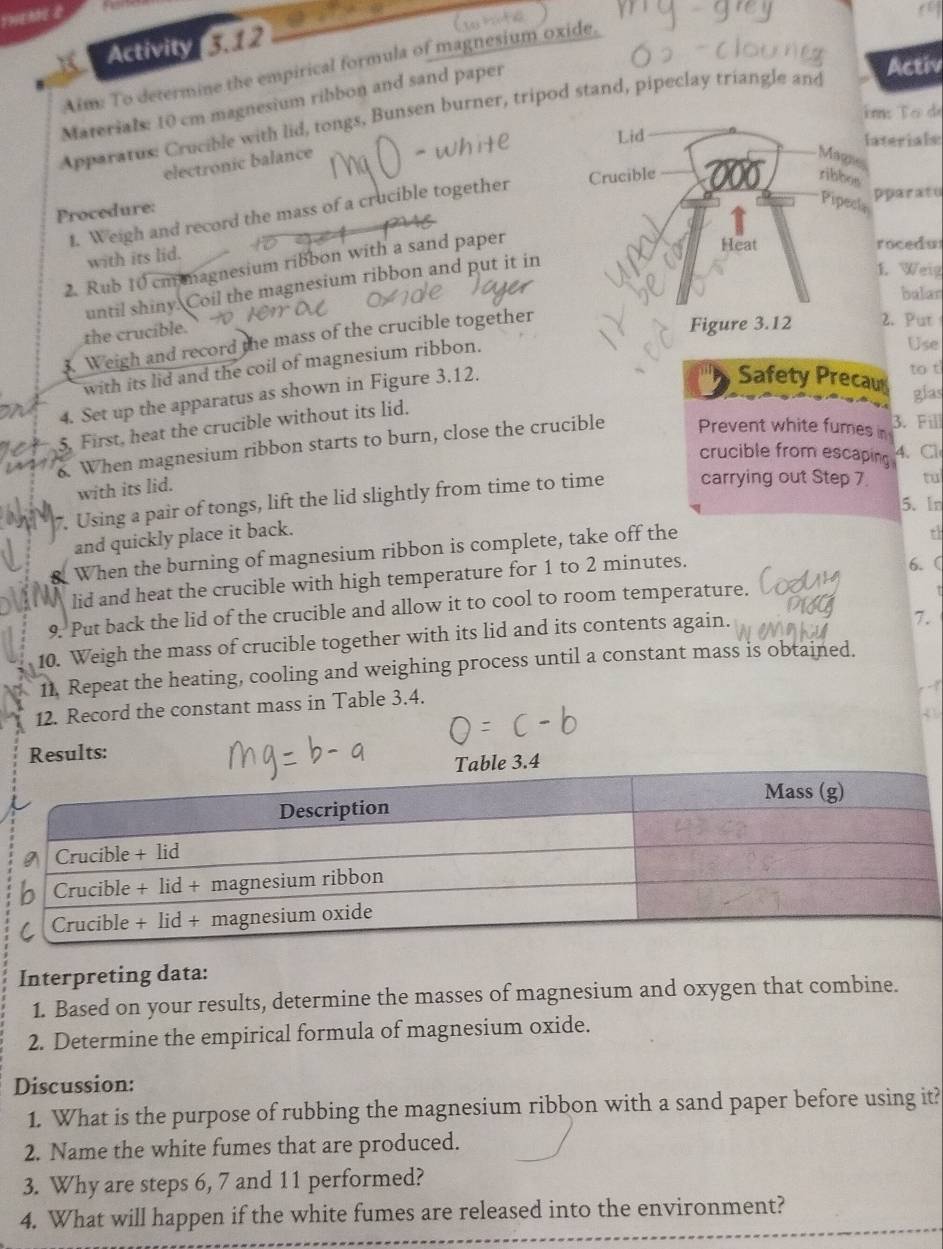 THEME 2
Activity 3.12
(white)
Mg - grey
O2 - colourless
Aim: To determine the empirical formula of magnesium oxide.
Materials: 10 cm magnesium ribbon and sand paper
Apparatus: Crucible with lid, tongs, Bunsen burner, tripod stand, pipeclay triangle and
electronic balance
MgO - white
Procedure:
1. Weigh and record the mass of a crucible together
with its lid.
to get
2. Rub 10 cm magnesium ribbon with a sand paper
until shiny. Coil the magnesium ribbon and put it in
the crucible.
oxide layer
3. Weigh and record the mass of the crucible together
with its lid and the coil of magnesium ribbon.
4. Set up the apparatus as shown in Figure 3.12.
5. First, heat the crucible without its lid.
6. When magnesium ribbon starts to burn, close the crucible
with its lid.
7. Using a pair of tongs, lift the lid slightly from time to time
and quickly place it back.
8. When the burning of magnesium ribbon is complete, take off the
lid and heat the crucible with high temperature for 1 to 2 minutes.
9. Put back the lid of the crucible and allow it to cool to room temperature.
10. Weigh the mass of crucible together with its lid and its contents again.
11. Repeat the heating, cooling and weighing process until a constant mass is obtained.
12. Record the constant mass in Table 3.4.
Lid
Crucible
Magnes
ribbon
Pipecla
Heat
Figure 3.12
Safety Precaut
Prevent white fumes in
crucible from escaping
carrying out Step 7.
Activ
im: To de
laterials
pparatu
rocedur
1. Weig
balan
2. Put
Use
to t
glas
3. Fill
4. Cl
tu
5. In
th
6. C
7.
Results:
Mg = b - a
O = c - b
Table 3.4
Description Mass (g)
a Crucible + lid
b Crucible + lid + magnesium ribbon
c Crucible + lid + magnesium oxide
Interpreting data:
1. Based on your results, determine the masses of magnesium and oxygen that combine.
2. Determine the empirical formula of magnesium oxide.
Discussion:
1. What is the purpose of rubbing the magnesium ribbon with a sand paper before using it?
2. Name the white fumes that are produced.
3. Why are steps 6, 7 and 11 performed?
4. What will happen if the white fumes are released into the environment?